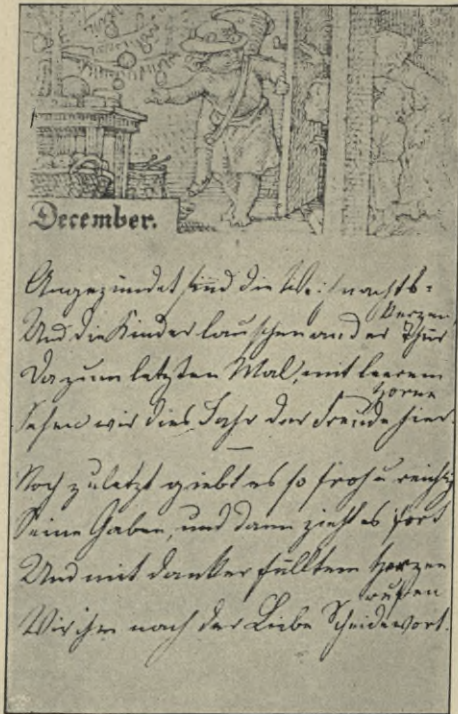 December.
Angezündet sind die Weihnachts-
kerzen,
Und die Kinder lauschen an der Thür
Da zum letzten Mal, mit leerem
Horne
Sehen wir dies Jahr der Freude hier.
Noch zuletzt giebt es so froh u reichlich
Seine Gaben, und dann zieht es fort
Und mit dankerfülltem Herzen
rufen
Wir ihm nach der Liebe Scheidewort.